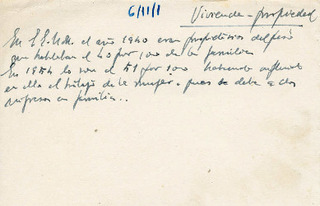 6/11/1
Vivienda - propiedad
En EE.UU. el año 1940 eran propietarios del piso
que habitaban el 40 por 100 de las familias
En 1954 lo son el 51 por 100 habiendo influido
en ello el trabajo de la mujer, pues se debe a dos
ingresos en familia..